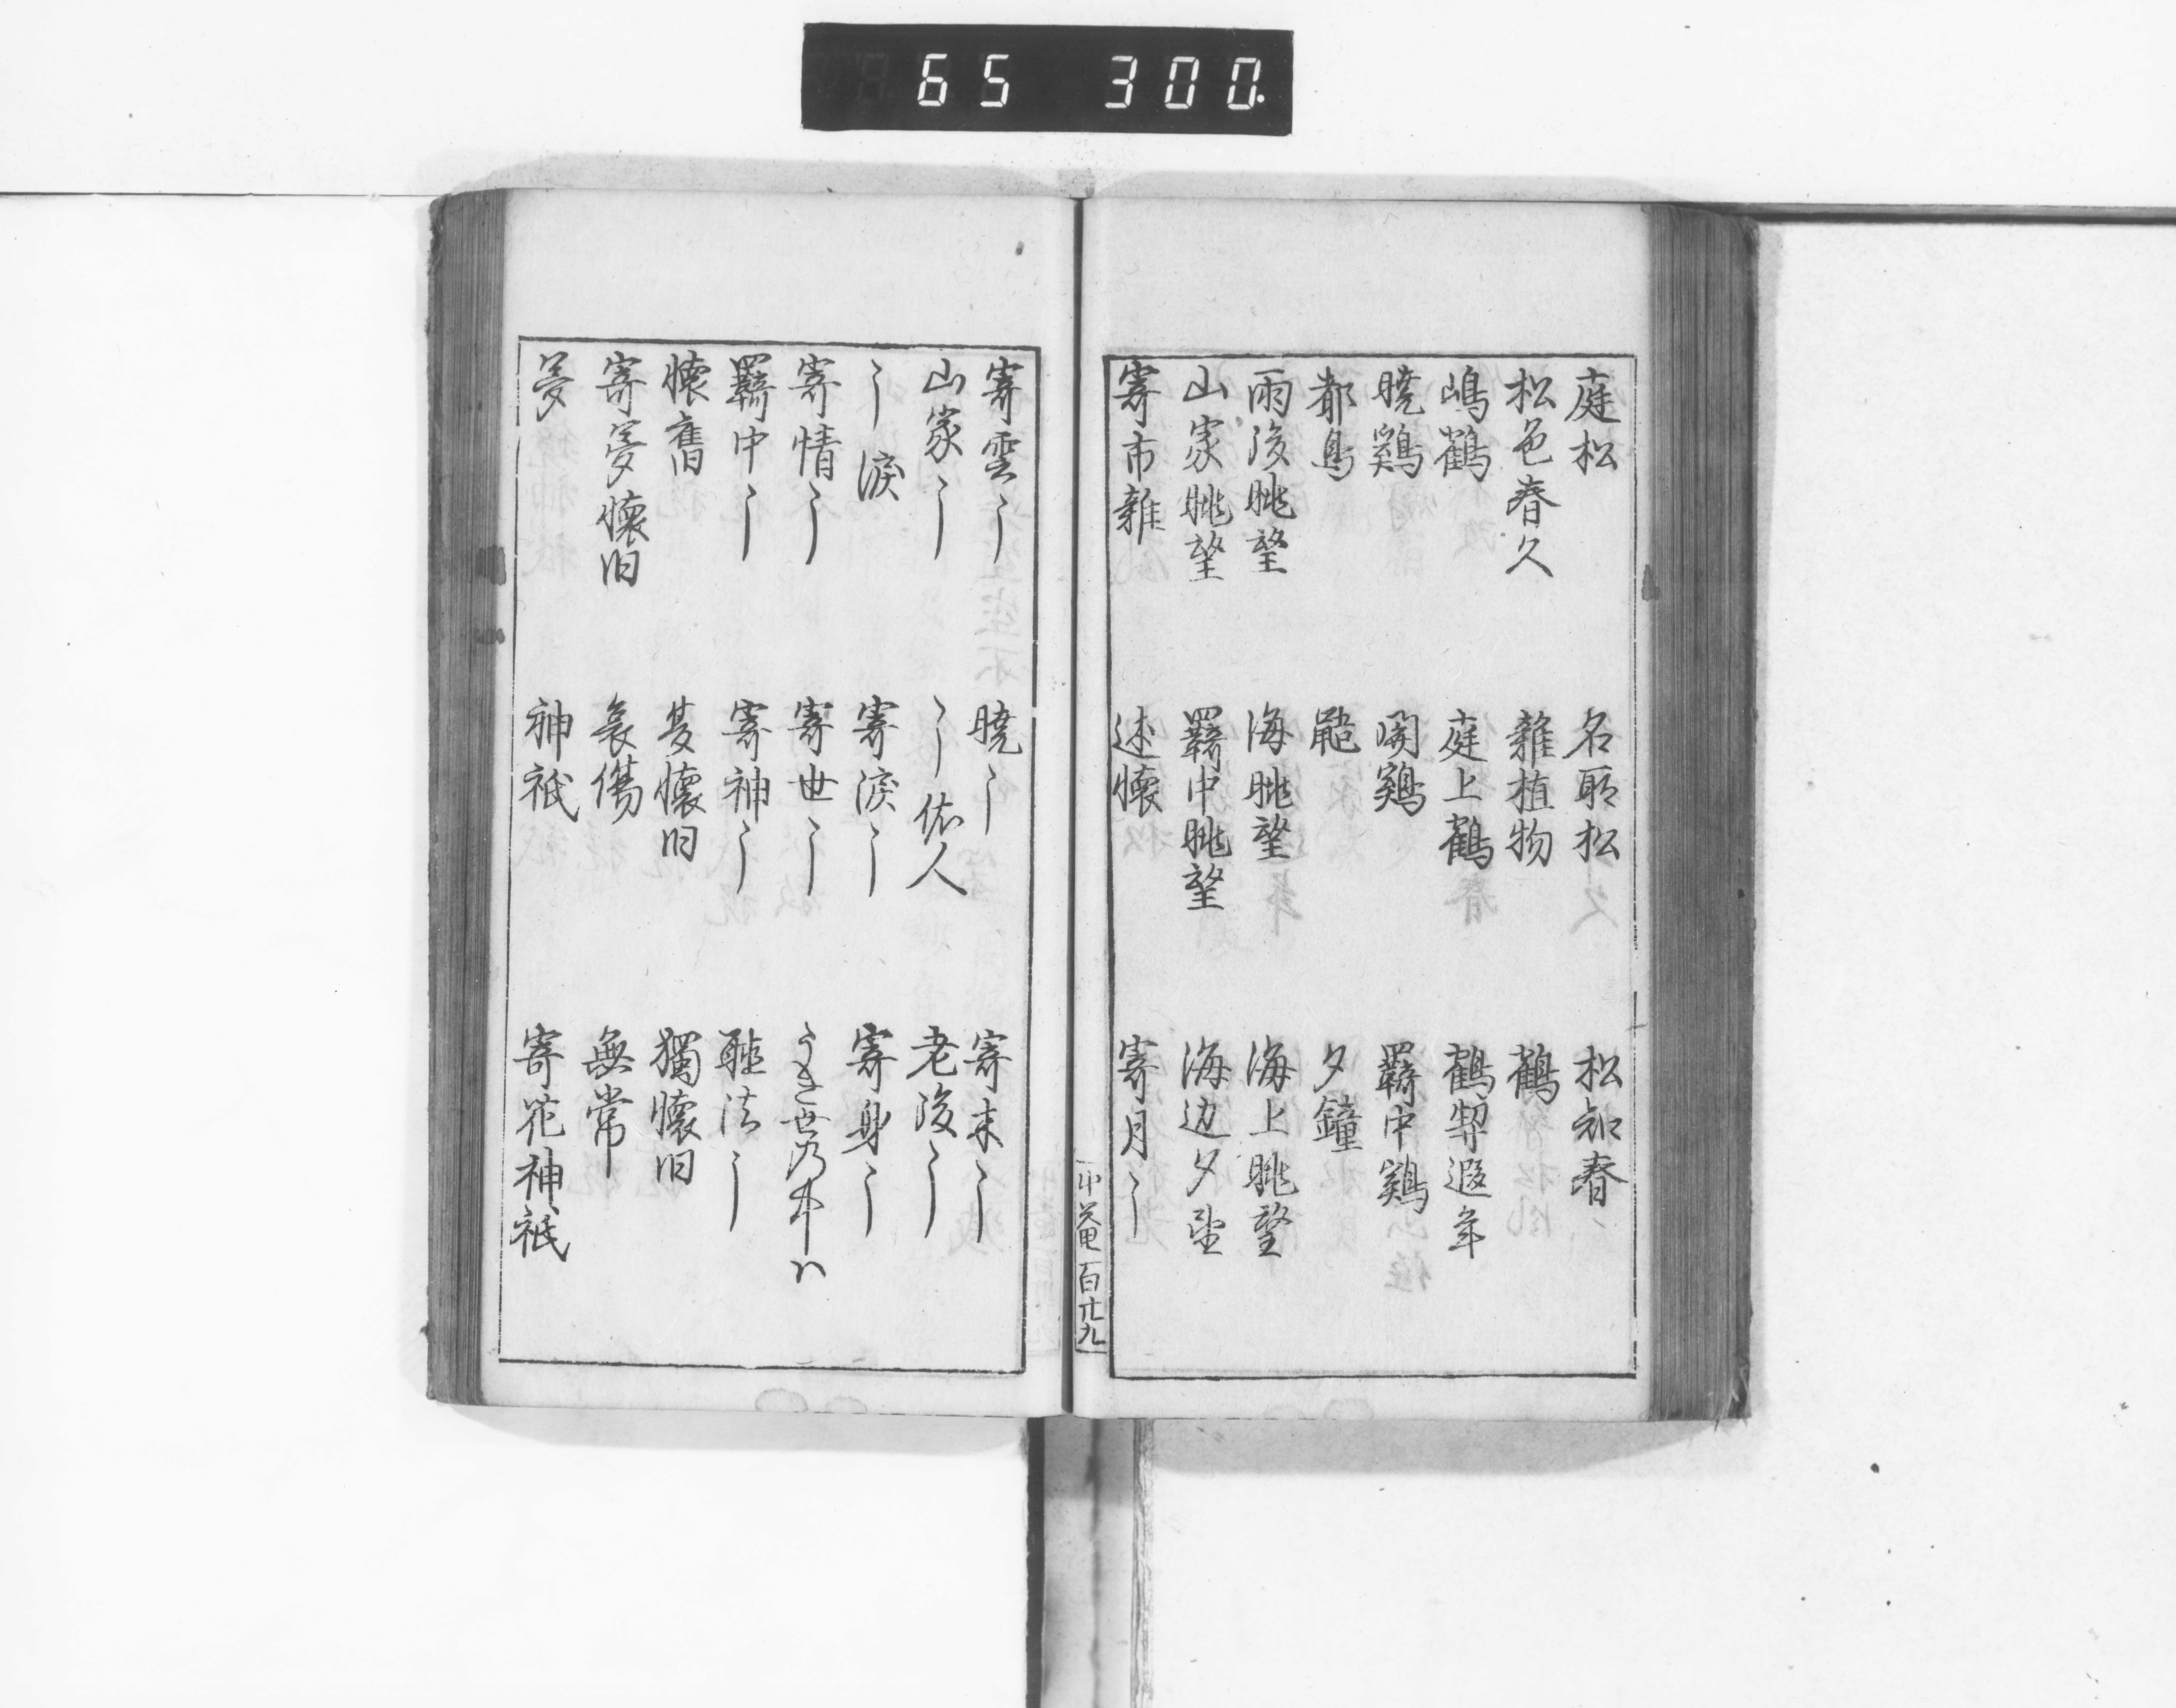 65 300.
庭松 名所松 松知春
松色春久 雑植物 鶴
嶋鶴 庭上鶴 鶴契遐年
暁鶏 関鶏 羇中鶏
都鳥 夕鐘
雨後眺望 海眺望 海上眺望
山家眺望 羇中眺望 海辺夕望
寄市雑 述懐 寄月〻
百廿九
寄雲〻 暁〻 寄木〻
山家〻 〻依人 老後〻
〻涙 寄涙〻 寄身〻
寄情〻 寄世〻 うき世の中ハ
羇中〻 寄神〻 聴法〻
懐舊 夏懐旧 獨懐旧
寄夢懐旧 哀傷 無常
夢 神祇 寄花神祇